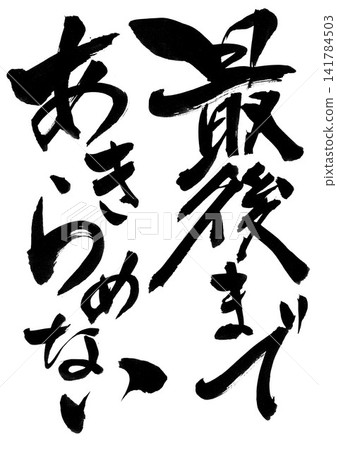 最後まで
あきらめない
PIXTA
141784503